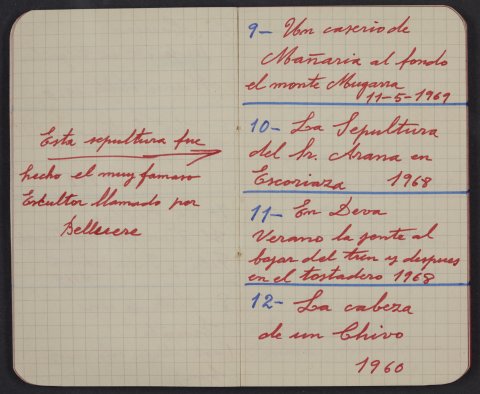 Esta sepultura fue
hecho el muy famoso
Escultor llamado por
Bellvere
9- Un caserio de
Mañaria al fondo
el monte Mugarra
11-5-1969
10- La Sepultura
del Sr. Arana en
Escoriaza 1968
11- En Deva
Verano la jente al
bajar del tren y despues
en el tostadero 1968
12- La cabeza
de un Chivo
1960